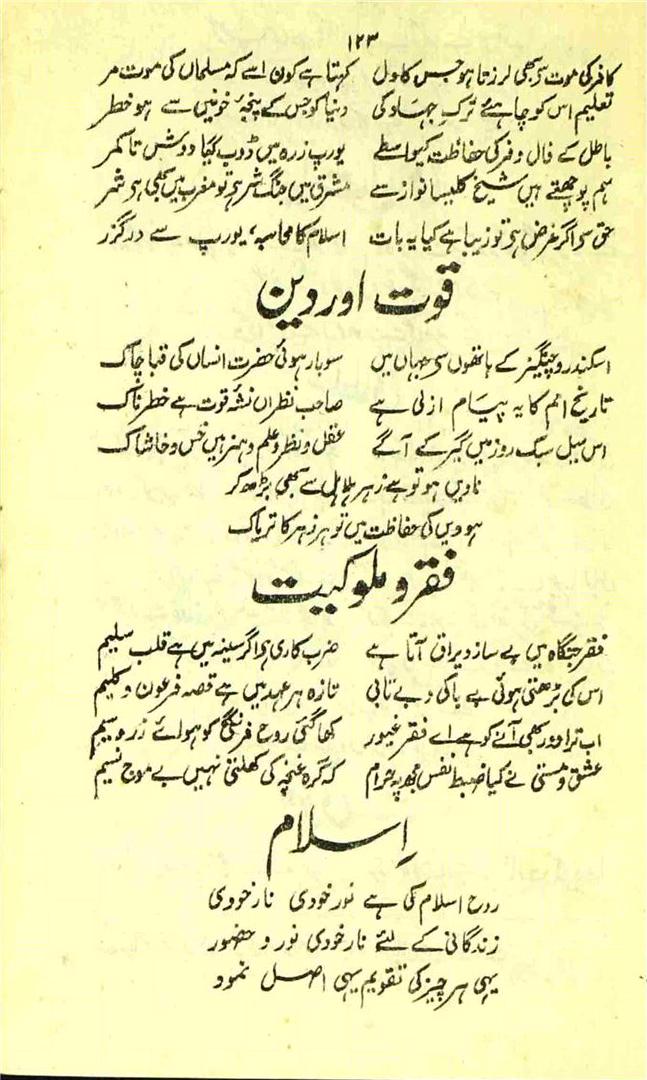 ۱۲۳
کافر کی موت سے بھی لرزتا ہو جس کا دل کہتا ہے کون اسے کہ مسلماں کی موت مر
تعلیم اس کو چاہئے ترک جہاد کی دنیا کو جس کے پنجۂ خونیں سے ہو خطر
باطل کے فال و فر کی حفاظت کیواسطے یورپ زرہ میں ڈوب گیا دوش تا کمر
ہم پوچھتے ہیں شیخ کلیسا نواز سے مشرق میں جنگ شر ہے تو مغرب میں بھی ہے شر
حق سے اگر غرض ہے تو زیبا ہے کیا یہ بات اسلام کا محاسبہ، یورپ سے درگزر
قوت اور دین
اسکندر و چنگیز کے ہاتھوں سے جہاں میں سو بار ہوئی حضرت انساں کی قبا چاک
تاریخ امم کا یہ پیام ازلی ہے صاحب نظراں نشۂ قوت ہے خطرناک
اس سیل سبک روز میں گیر کے آگے عقل و نظر و علم و ہنر ہیں خس و خاشاک
لادیں ہو تو ہے زہر ہلاہل سے بھی بڑھ کر
ہو دیں کی حفاظت میں تو ہر زہر کا تریاک
فقر و ملوکیت
فقر جنگاہ میں بے ساز و یراق آتا ہے ضرب کاری ہے اگر سینہ میں ہے قلب سلیم
اس کی بڑھتی ہوئی بے باکی و بے تابی تازہ ہر عہد میں ہے قصہ فرعون و کلیم
اب ترا دور بھی آنے کو ہے اے فقر غیور کھا گئی روح فرنگی کو ہوائے زر و سیم
عشق و مستی نے کیا ضبط نفس مجھ پہ حرام کہ گرہ غنچہ کی کھلتی نہیں بے موج نسیم
اسلام
روح اسلام کی ہے نور خودی نار خودی
زندگانی کے لئے نار خودی نور و حضور
یہی ہر چیز کی تقویم یہی اصل نمود